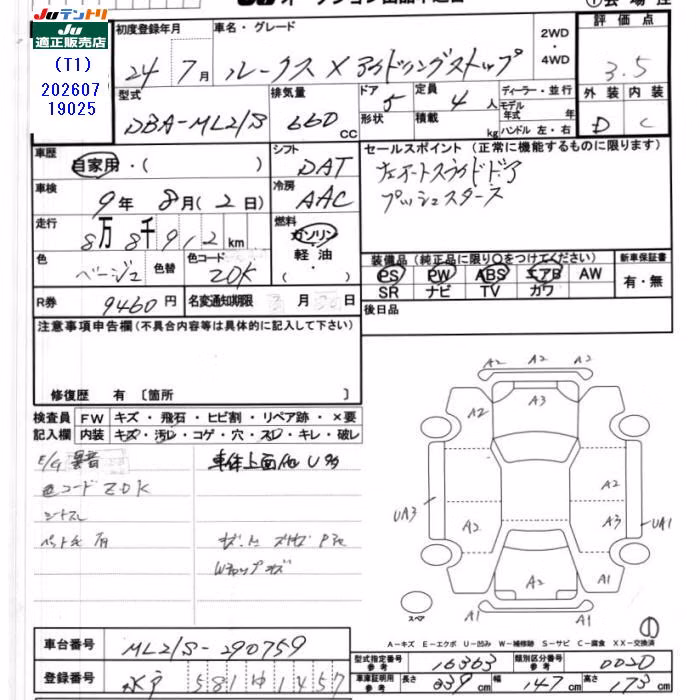 Juテントリ
適正販売店
(T1)
202607
19025
初度登録年月
24年 7月
車名・グレード
ルークス X アイドリングストップ
2WD
・
4WD
評価点
3.5
外装 内装
D C
型式
DBA-ML21S
排気量
660 cc
ドア 5
定員 4人
形状
積載 kg
ディーラー・並行
モデル年式 年
ハンドル 左・右
車歴
自家用・( )
シフト
DAT
セールスポイント (正常に機能するものに限ります)
左オートスライドドア
プッシュスタート
車検
9年 8月(2日)
冷房
AAC
走行
8万8千912km
燃料
ガソリン
軽油・
( )
色
ベージュ
色替
色コード
ZDK
装備品(純正品に限り○をつけてください)
PS PW ABS エアB AW
SR ナビ TV カワ
新車保証書
有・無
R券
9460円
名変通知期限 月 日
後日品
注意事項申告欄(不具合内容等は具体的に記入して下さい)
修復歴 有〔箇所 〕
検査員記入欄
FW キズ・飛石・ヒビ割・リペア跡・×要
内装 キズ・汚レ・コゲ・穴・スレ・キレ・破レ
E/G異音
色コードZDK
シートスレ
車体上面 AU多
Wカップキズ
A2 A2 A2
A2 A3
A2
UA3 A2 A3 UA1
A2 A1
A1 A1
スペア
A－キズ E－エクボ U－凹み W－補修跡 S－サビ C－腐食 XX－交換済
車台番号
ML21S-290759
登録番号
水戸 581 ゆ 1457
型式指定番号 参考
16363
類別区分番号 参考
0020
車庫証明用 参考
長さ 339cm 幅 147cm 高さ 173cm